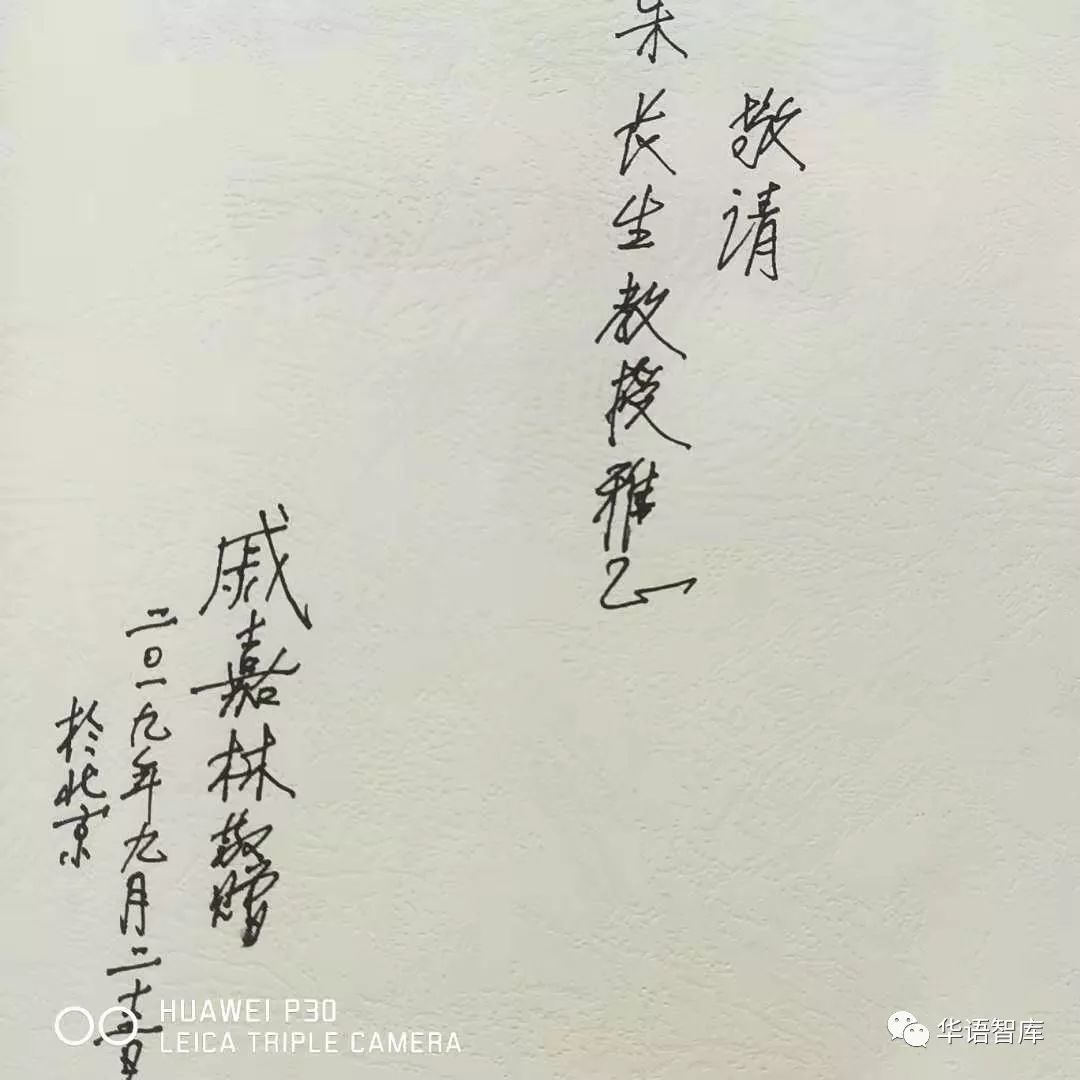 敬请
朱长生教授雅正
戚嘉林敬赠
二〇一九年九月二十日
於北京
HUAWEI P30
LEICA TRIPLE CAMERA
华语智库